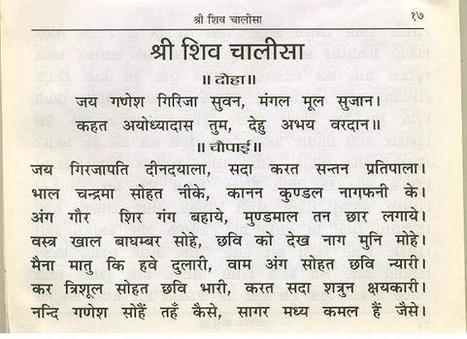 श्री शिव चालीसा १७
श्री शिव चालीसा
॥ दोहा॥
जय गणेश गिरिजा सुवन, मंगल मूल सुजान।
कहत अयोध्यादास तुम, देहु अभय वरदान॥
॥ चौपाई॥
जय गिरजापति दीनदयाला, सदा करत सन्तन प्रतिपाला।
भाल चन्द्रमा सोहत नीके, कानन कुण्डल नागफनी के।
अंग गौर शिर गंग बहाये, मुण्डमाल तन छार लगाये।
वस्त्र खाल बाघम्बर सोहे, छवि को देख नाग मुनि मोहे।
मैना मातु कि हवे दुलारी, वाम अंग सोहत छवि न्यारी।
कर त्रिशूल सोहत छवि भारी, करत सदा शत्रुन क्षयकारी।
नन्दि गणेश सोहैं तहँ कैसे, सागर मध्य कमल हैं जैसे।